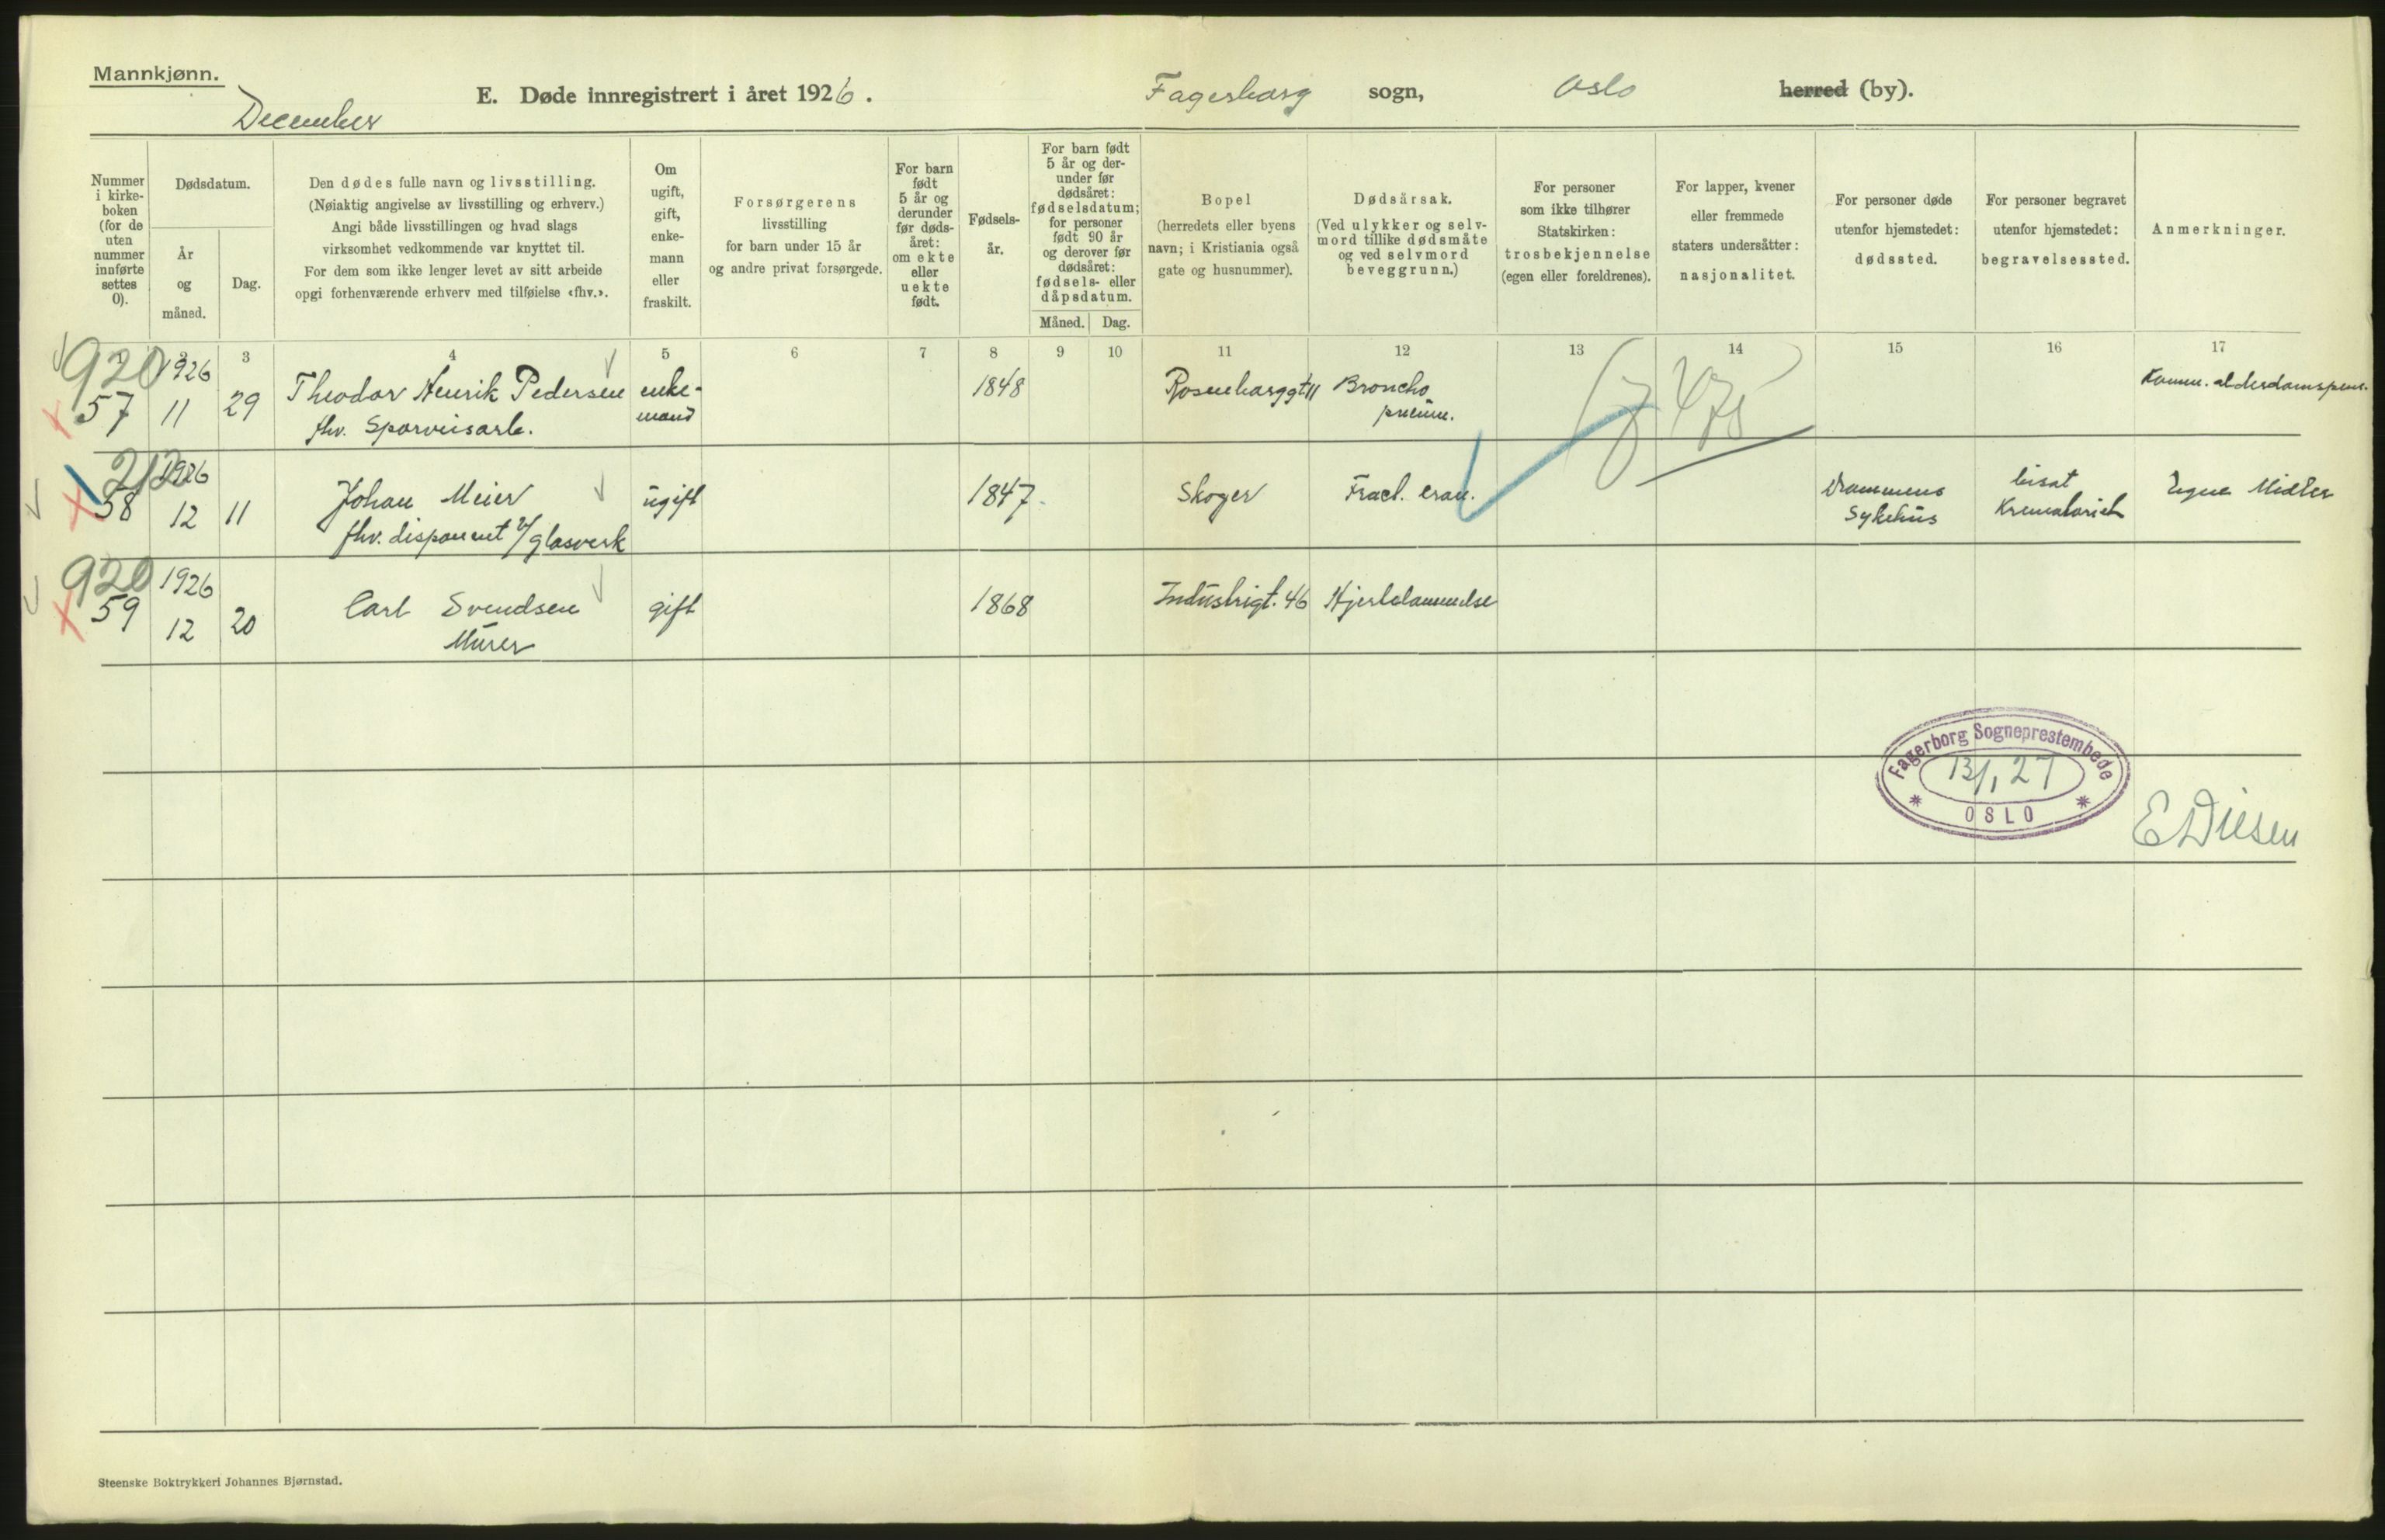 Mannkjønn.
December
E. Døde innregistrert i året 1926.
Fagerborg sogn, Oslo herred (by).
Nummer i kirke-boken (for de uten nummer innførte settes 0).
Dødsdatum.
År og måned.
Dag.
Den dødes fulle navn og livsstilling.
(Nøiaktig angivelse av livsstilling og erhverv.)
Angi både livsstillingen og hvad slags
virksomhet vedkommende var knyttet til.
For dem som ikke lenger levet av sitt arbeide
opgi forhenværende erhverv med tilføielse «fhv.».
Om ugift, gift, enke-mann eller fraskilt.
Forsørgerens
livsstilling
for barn under 15 år
og andre privat forsørgede.
For barn født 5 år og derunder før døds-året: om ekte eller uekte født.
Fødsels-år.
For barn født 5 år og der-under før dødsåret: fødselsdatum; for personer født 90 år og derover før dødsåret: fødsels- eller dåpsdatum.
Måned. Dag.
Bopel
(herredets eller byens
navn; i Kristiania også
gate og husnummer).
Dødsårsak.
(Ved ulykker og selv-
mord tillike dødsmåte
og ved selvmord
beveggrunn.)
For personer
som ikke tilhører
Statskirken:
trosbekjennelse
(egen eller foreldrenes).
For lapper, kvener
eller fremmede
staters undersåtter:
nasjonalitet.
For personer døde
utenfor hjemstedet:
dødssted.
For personer begravet
utenfor hjemstedet:
begravelsessted.
Anmerkninger.
3 4 5 6 7 8 9 10 11 12 13 14 15 16 17
920 1926
57 11 29 Theodor Henrik Pedersen enke- 1848 Rosenborggt 11 Broncho Komm. alderdomspens.
fhv. Sporveisarb. mand pneum.
212 1926
58 12 11 Johan Meier ugift 1847. Skoger Fract. cran. Drammens bisat Egne Midler
fhv. disponent v/glasverk Sykehus Krematoriet
920 1926
59 12 20 Carl Svendsen gift 1868 Industrigt. 46 Hjertelammelse
Murer
Fagerborg Sogneprestembede
13/1 27
* OSLO *
E Diesen
Steenske Boktrykkeri Johannes Bjørnstad.